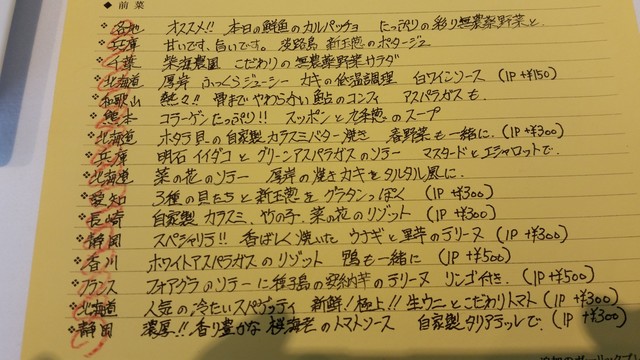 ◆ 前菜
各地 オススメ!! 本日の鮮魚のカルパッチョ にっぷりの彩り無農薬野菜と
兵庫 甘いです、白いです。淡路島 新玉葱のポタージュ
千葉 柴海農園 こだわりの無農薬野菜サラダ
北海道 厚岸 ふっくらジューシー カキの低温調理 白ワインソース (1P +¥150)
和歌山 熱々!! 骨までやわらかい鮎のコンフィ アスパラガスも
熊本 コラーゲンたっぷり!! スッポンと九条葱のスープ
北海道 ホタテ貝の自家製カラスミバター焼き 春野菜も一緒に (1P +¥300)
兵庫 明石 イイダコとグリーンアスパラガスのソテー マスタードとエシャロットで
北海道 菜の花のソテー 厚岸の焼きカキをタルタル風に
愛知 3種の貝たちと新玉葱をグラタンっぽく (1P +¥300)
長崎 自家製カラスミ、竹の子、菜の花のリゾット (1P +¥300)
静岡 スペシャリテ!! 香ばしく焼いた ウナギと里芋のテリーヌ (1P +¥300)
香川 ホワイトアスパラガスのリゾット 鴨も一緒に (1P +¥500)
フランス フォアグラのソテーに種子島の安納芋のテリーヌ リンゴ付き (1P +¥500)
北海道 人気の冷たいスパゲッティ 新鮮!極上!! 生ウニとこだわりトマト (1P +¥300)
静岡 濃厚!! 香り豊かな桜海老のトマトソース 自家製タリアテッレで (1P +¥300)